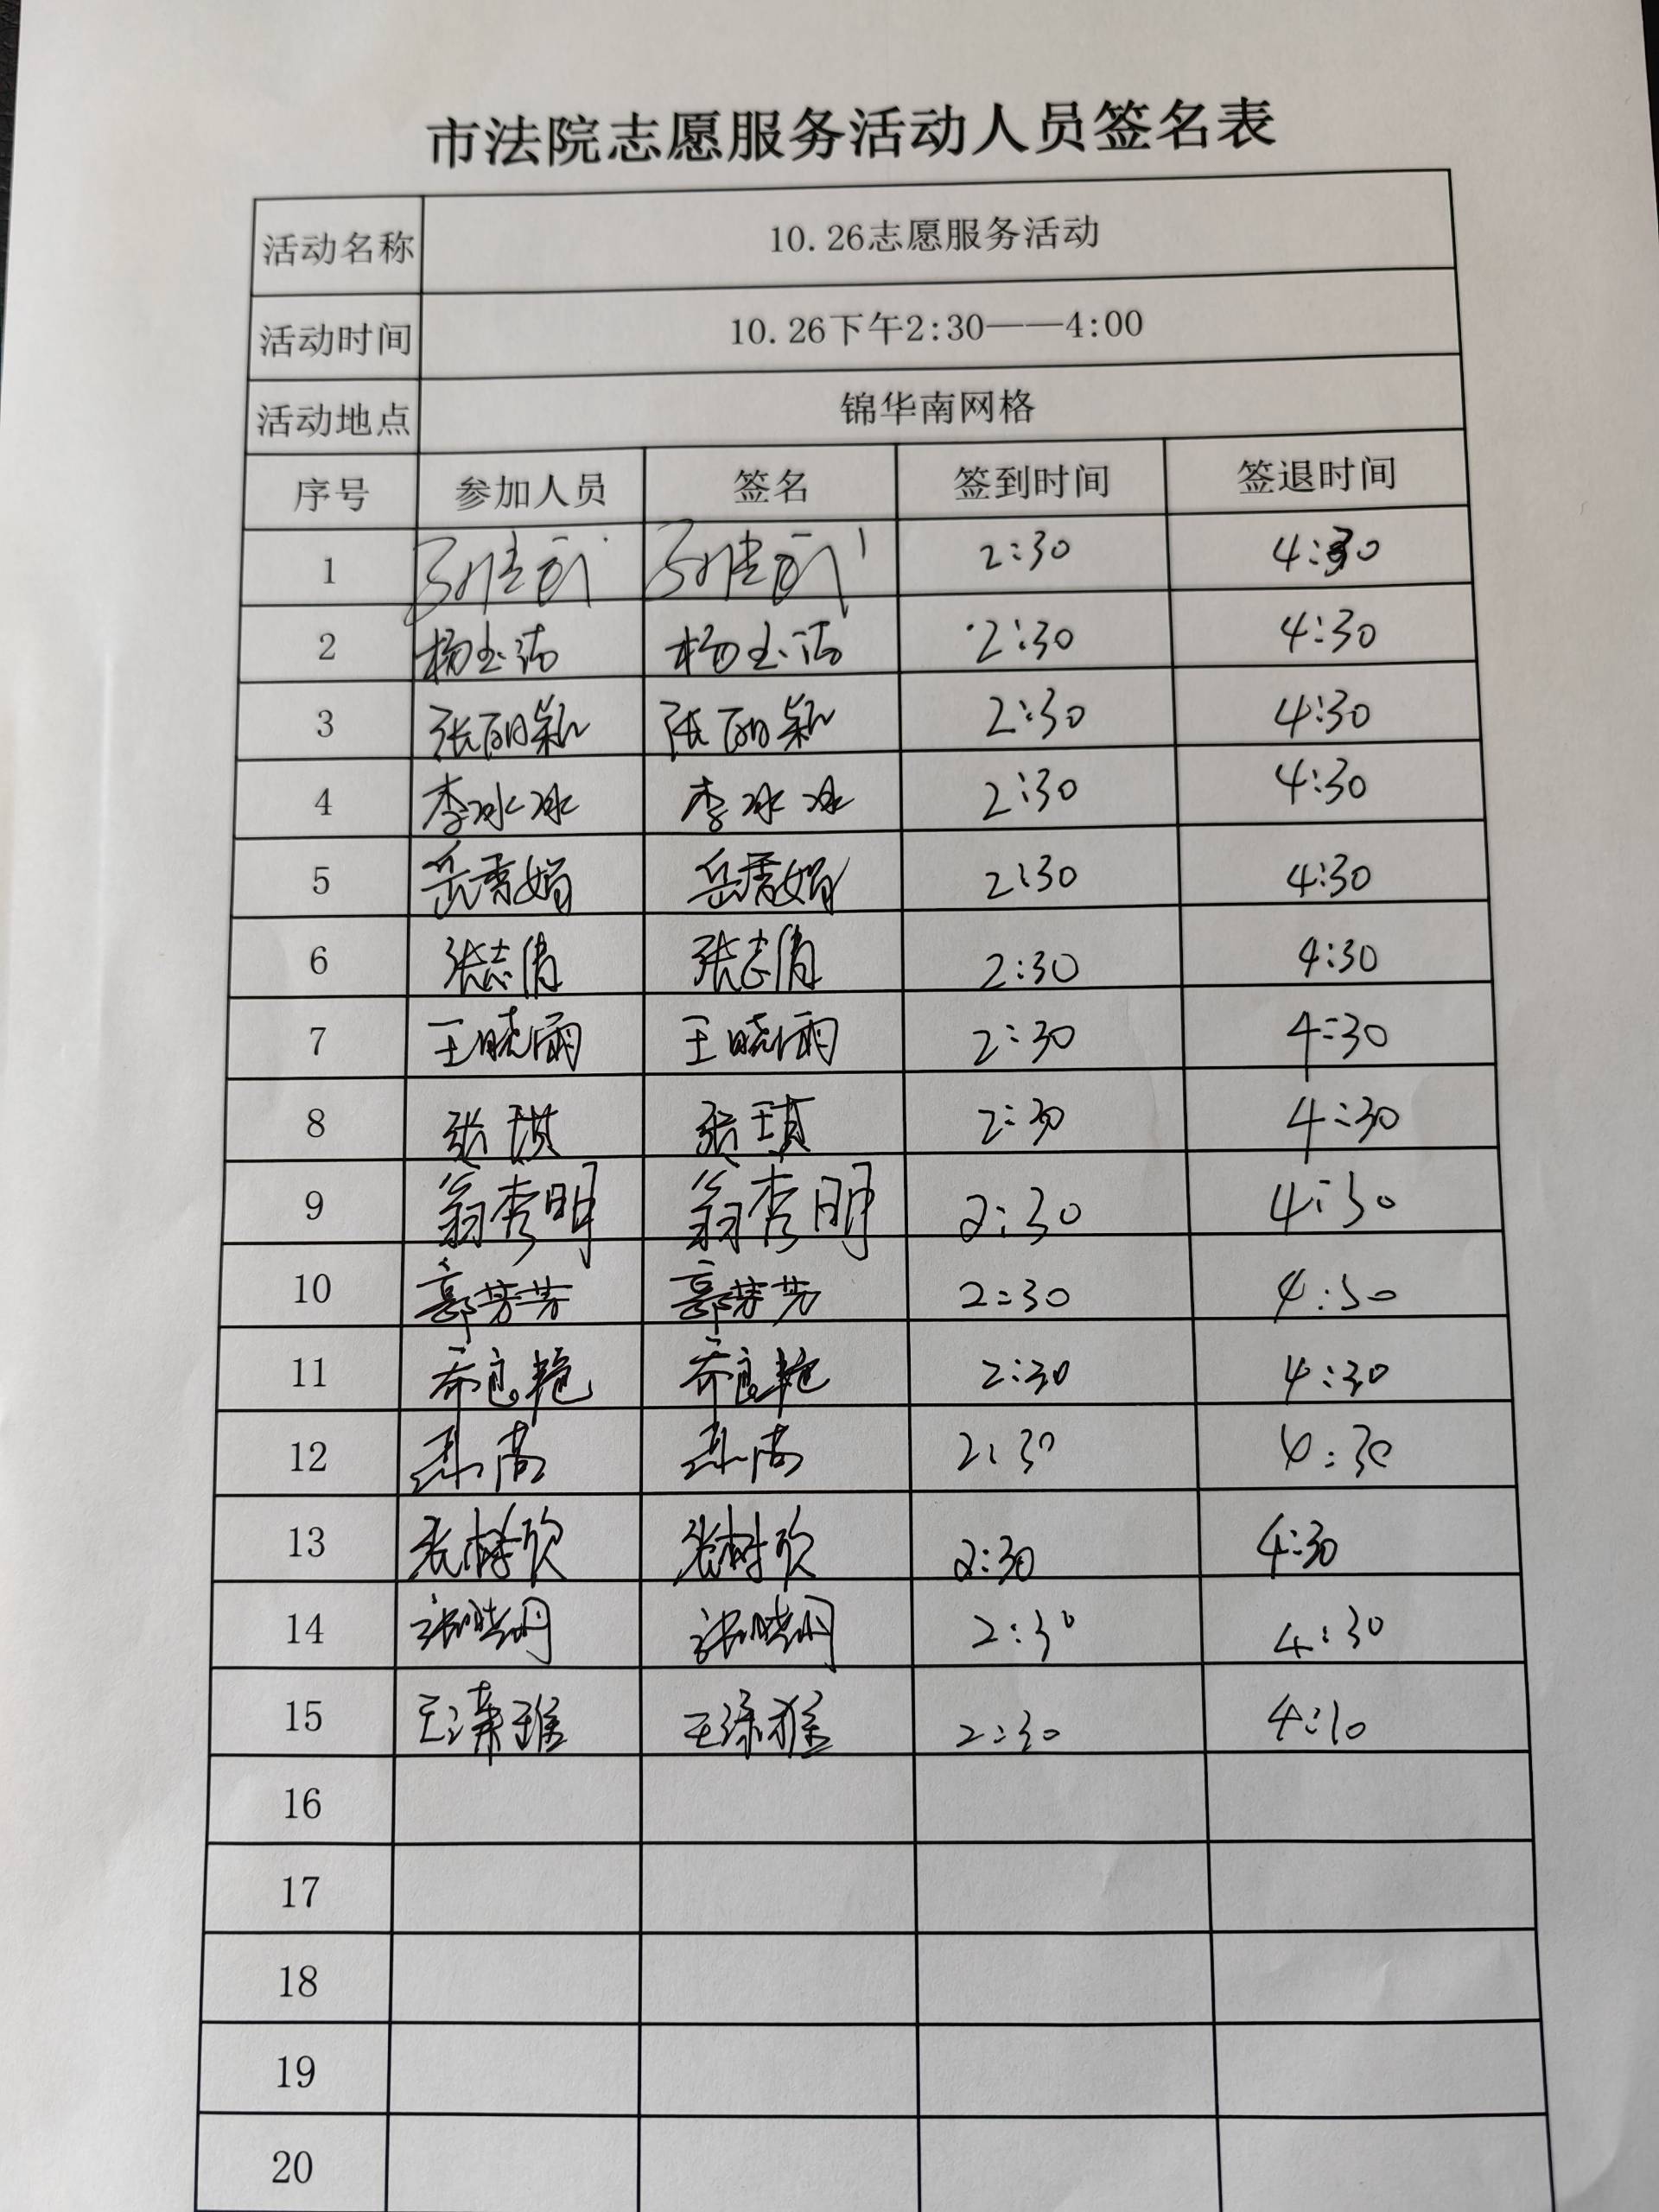 市法院志愿服务活动人员签名表
活动名称 10.26志愿服务活动
活动时间 10.26下午2:30——4:00
活动地点 锦华南网格
序号 参加人员 签名 签到时间 签退时间
1 2:30 4:30
2 杨玉洁 杨玉洁 2:30 4:30
3 张丽颖 张丽颖 2:30 4:30
4 李冰冰 李冰冰 2:30 4:30
5 岳秀娟 岳秀娟 2:30 4:30
6 张志倩 张志倩 2:30 4:30
7 王晓雨 王晓雨 2:30 4:30
8 张琪 张琪 2:30 4:30
9 翁秀明 翁秀明 2:30 4:30
10 郭芳芳 郭芳芳 2:30 4:30
11 乔良艳 乔良艳 2:30 4:30
12 2:30 4:30
13 张树欣 张树欣 2:30 4:30
14 张晓丹 张晓丹 2:30 4:30
15 2:30
16
17
18
19
20